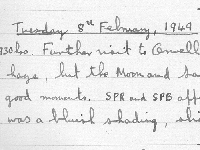 Tuesday 8th February, 1949
930 hrs. Further visit to
haze, but the Moon and
good moments. SPR and SPB
was a bluish shading,